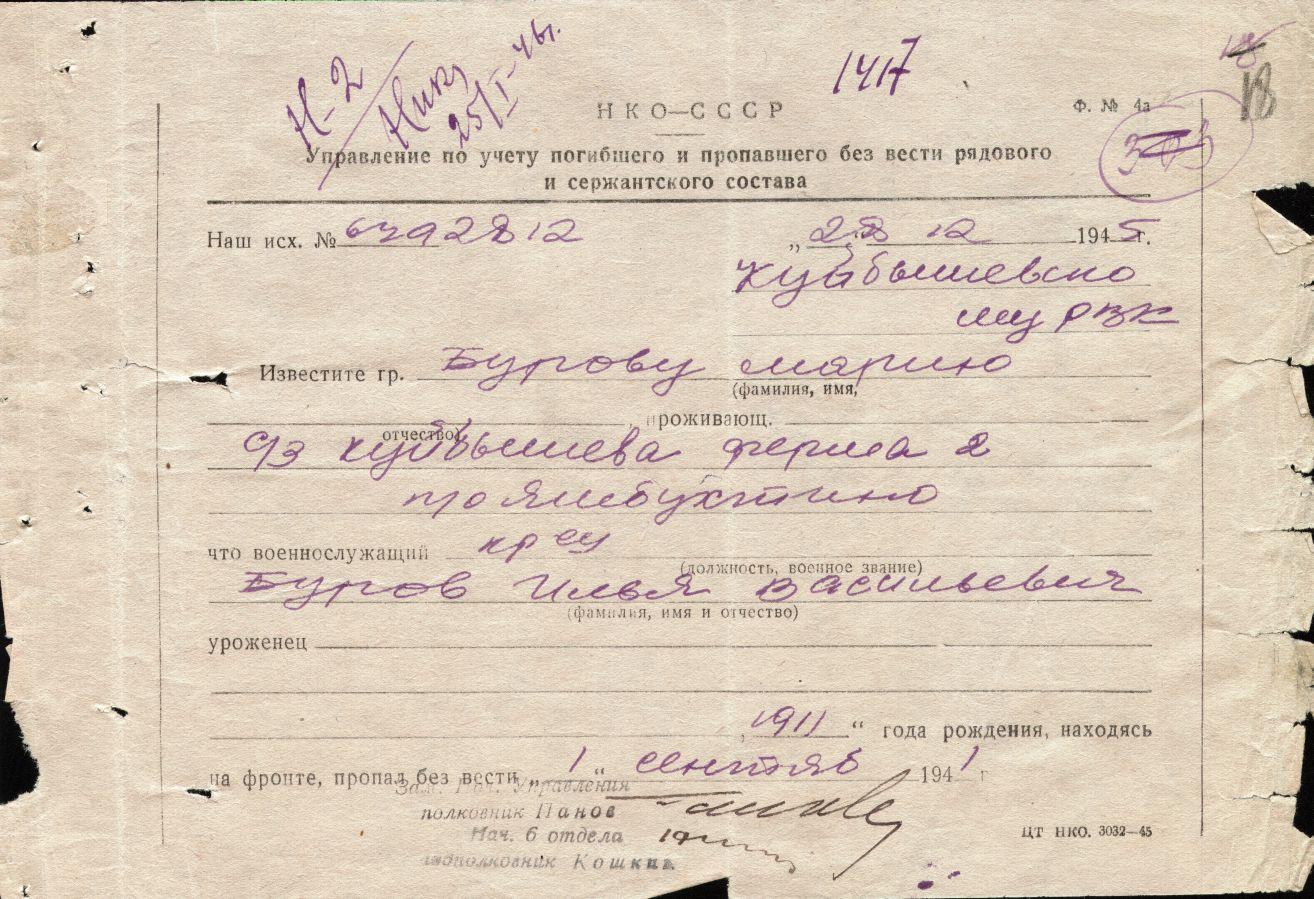 Н-2
25/I-46г.
1417
18
НКО—СССР
Ф. № 4а
Управление по учету погибшего и пропавшего без вести рядового
и сержантского состава
Наш исх. № 6492812 „28" 12 1945 г.
Куйбышевско
му РВК
Известите гр. Бурову Марию
(фамилия, имя,
отчество) проживающ.
с/з Куйбышева ферма 2
п/о Ямбухтино
что военнослужащий кр-ец
(должность, военное звание)
Буров Илья Васильевич
(фамилия, имя и отчество)
уроженец
„1911“ года рождения, находясь
на фронте, пропал без вести „1“ сентяб 1941 г
Зам. Нач. Управления
полковник Панов
Нач. 6 отдела
подполковник Кошкин
ЦТ НКО. 3032—45